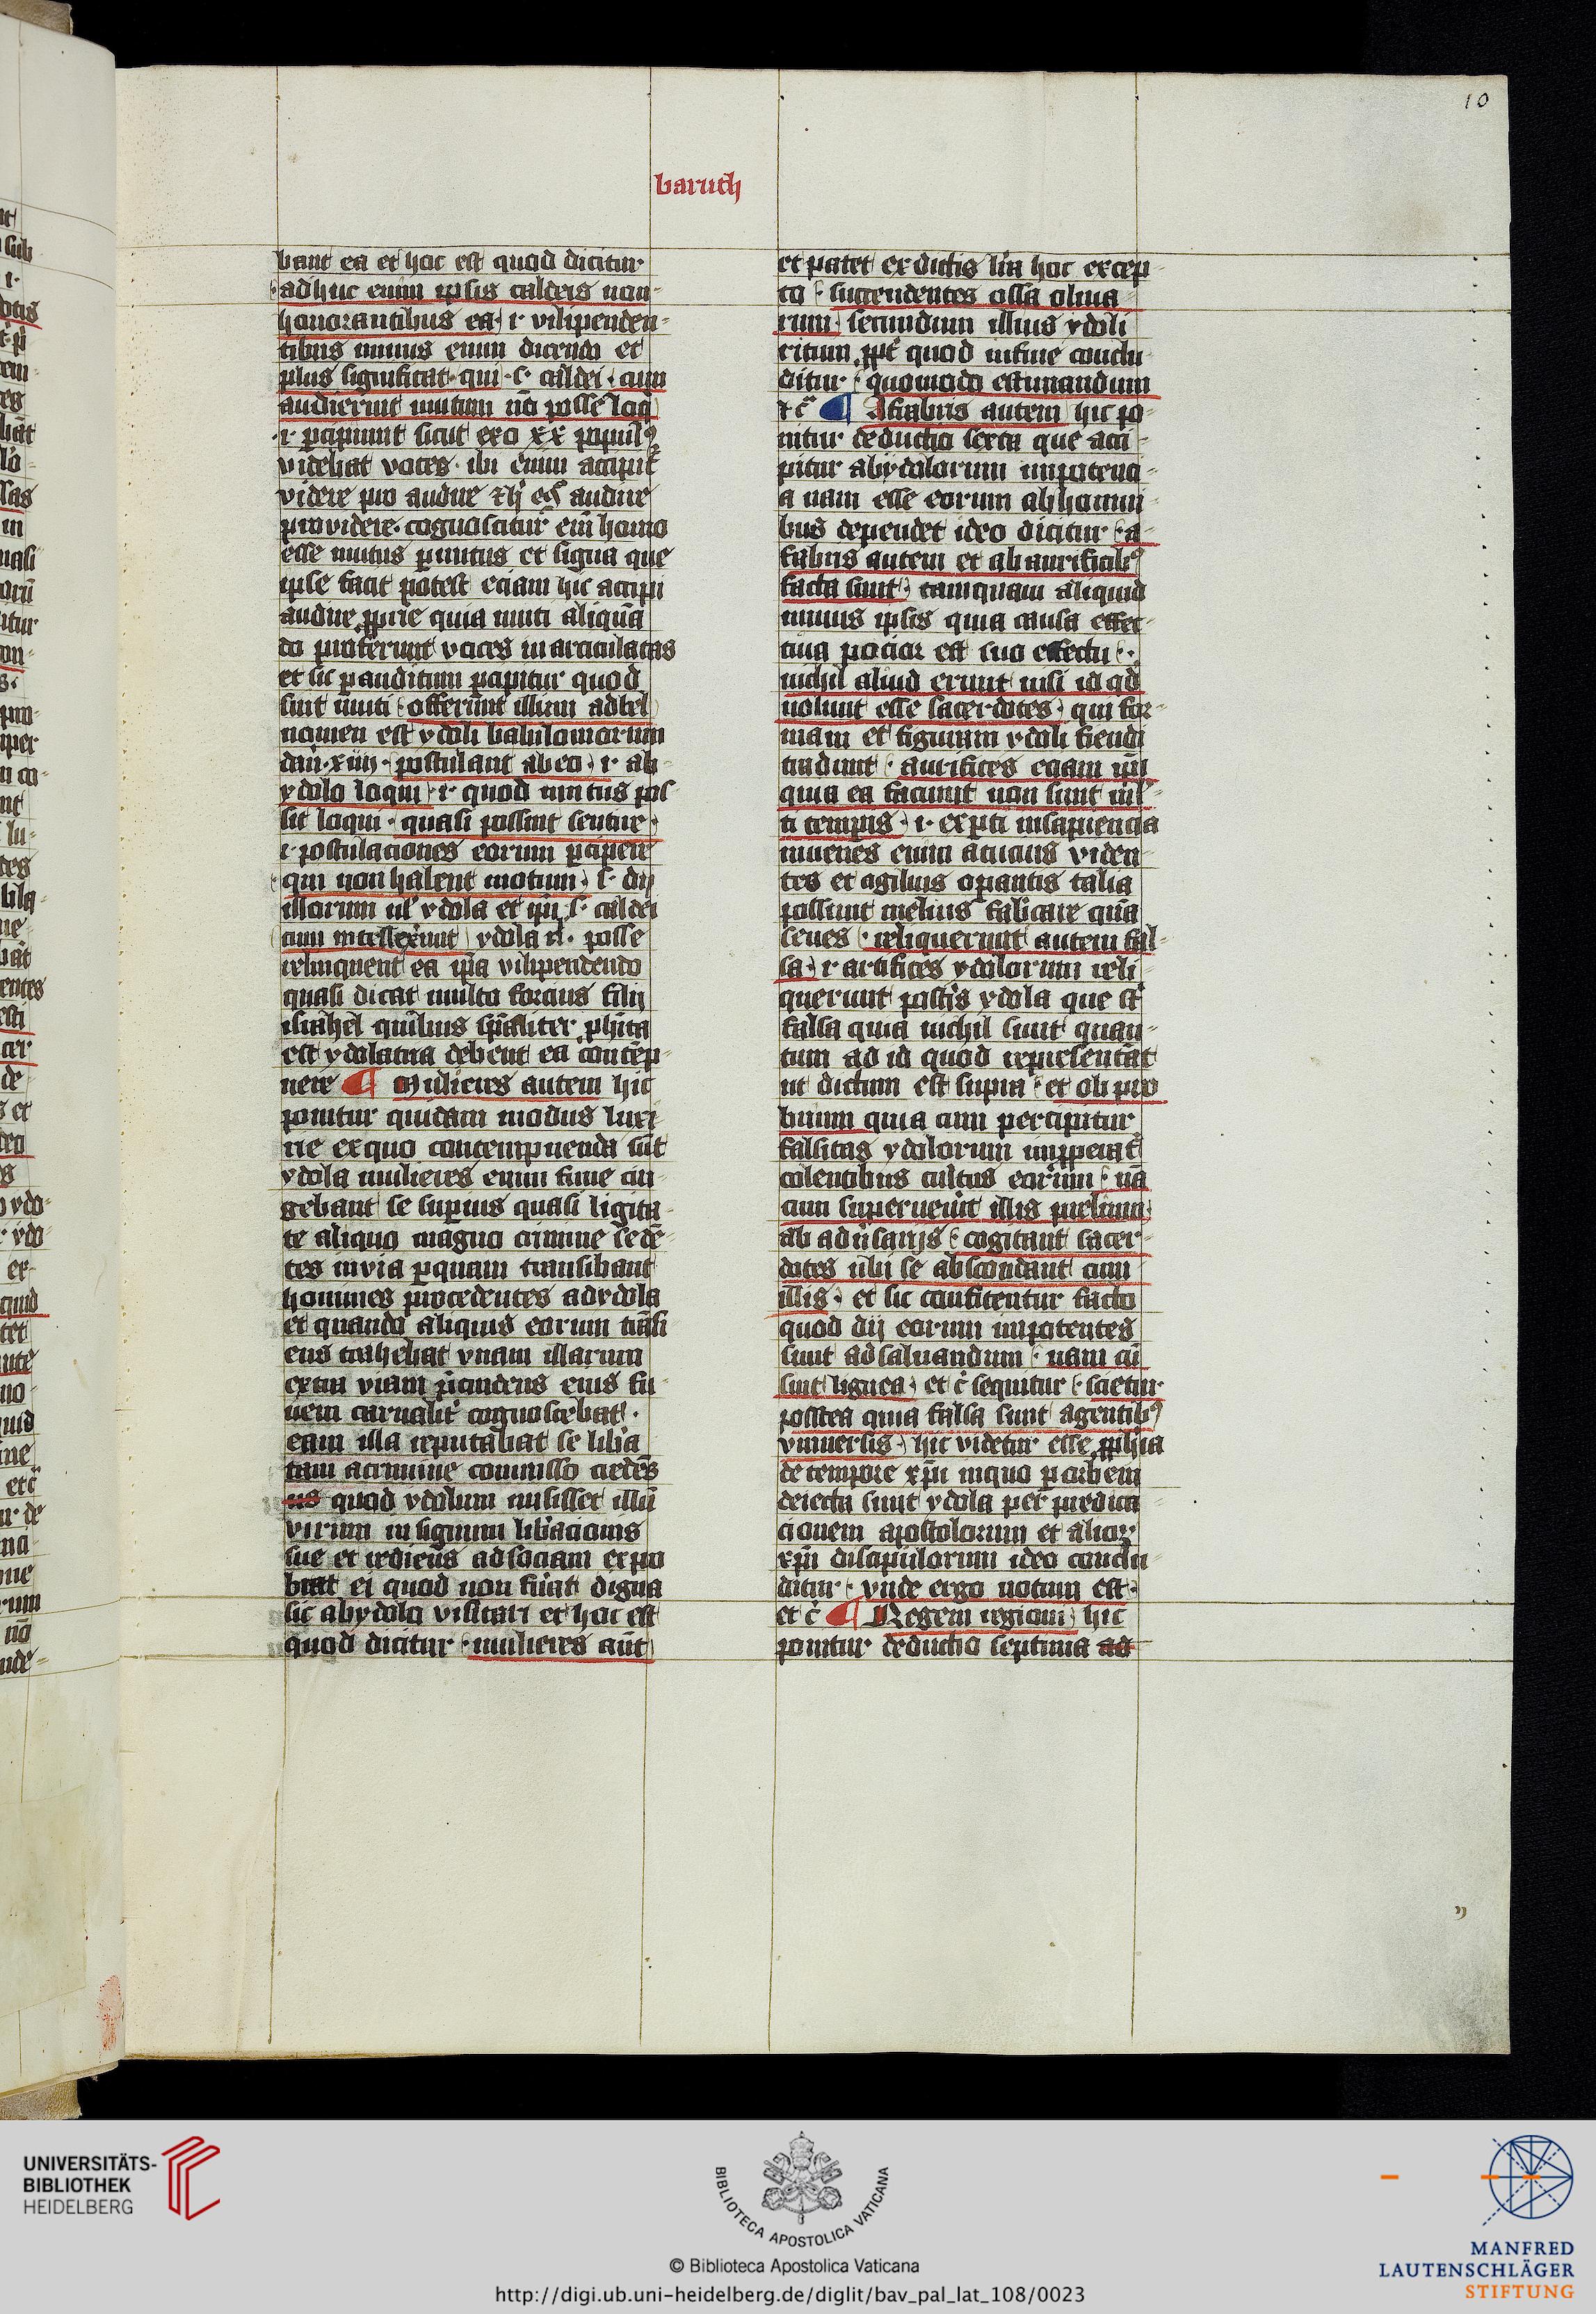 10
baruch
bant ea et hoc est quod dicitur
adhuc enim ipsis caldeis non
honorantibus ea · i· vilipenden
tibus minus enim dicendo et
plus significat · qui · s· caldei · cum
audierint mutum nō posse loq̄
·i· p̱cipiunt sicut exo xx popul9
videbat voces · ibi enim accipit᷑
videre pro audire
pro videre · cognoscitur eī homo
esse mutus p̱ nutus et signa que
ipse facit potest eciam hic accipi
audire ꝓprie quia muti aliquā
do proferunt voces inarticulatas
et sic p̱ auditum p̱cipitur quod
sint muti · offerunt illum ad bel
nomen est ydoli babilomorum
dan̄ · xiiij · postulant ab eo · i· ab
ydolo loqui · i· quod mutus pos
sit loqui · quasi possint sentire ·
i· postulaciones eorum p̱cipere
qui non habent motum · s· dij
illorum ul᷑ ydola et ip̄i · s· caldei
cum intellexerint ydola posse
relinquent ea ip̄a vilipendendo
quasi dicat multo forcius filij
israhel quibus sp̄aliter ꝓhita
est ydolatria debent ea contēp
nere ¶ Mulieres autem hic
ponitur quidam modus luxu
rie ex quo contempnenda sūt
ydola mulieres enim fune cin
gebant se superius quasi ligata
te aliquo magno crimine sedē
tes in via p̱ quam transibant
homines procedentes ad ydola
et quando aliquis eorum trāsi
ens trahebat vnam illarum
extra viam p̄cindens eius fu
nem carnalit᷑ cognoscebat ·
eam illa reputabat se libera
tam a crimine commisso credēs
us quod ydolum misisset illū
virum in signum liberacionis
sue et rediens ad sociam expro
brat ei quod non fuerat digna
sic ab ydolo visitari et hoc est
quod dicitur · mulieres aūt
et patet ex dictis līa hoc excep
to · succendentes ossa oliua
rum · secundum illius ydoli
ritum ꝓpt᷑ quod in fine conclu
ditur · quomodo estimandum
et c̄ ¶ A fabris autem hic po
nitur deductio sexta que acci
pitur ab ydolorum impotenci
a nam esse eorum ab homini
bus dependet ideo dicitur · a
fabris autem et ab aurificib9
facta sunt · tamquam aliquid
minus ipsis quia causa effec
tiua pocior est suo effectu ·
nichil aliud erunt nisi id qd̄
volunt esse sacerdotes · qui for
mam et figuram ydoli fiendi
tradunt · aurifices eciam ip̄i
quia ea faciunt non sunt ml᷑
ti temp̱is · i· exp̱ti in sapiencia
iuuenes enim acucius viden
tes et agilius op̱antis talia
possunt melius fabricare quā
senes · reliquerunt autem fal
sa · i· artifices ydolorum reli
querunt post᷑is ydola que sūt
falsa quia nichil sunt quan
tum ad id quod representāt
ut dictum est supra · et ob pro
brium quia cum percipitur
falsitas ydolorum imꝓperat᷑
colentibus cultus eorum · nā
cum superuen̄it illis prelium
ab adūsarijs · cogitant sacer
dotes ubi se abscondant cum
illis · et sic confitentur facto
quod dij eorum impotentes
sunt ad saluandum · nam cū
sint lignea · et c̄ sequitur · scietur
postea quia falsa sunt a gentib9
vniuersis · hic videtur esse ꝓphīa
de tempore xp̄i in quo p̱ orbem
deiecta sunt ydola per predica
cionem apostolorum et alioꝝ
xp̄i discipulorum ideo conclu
ditur · vnde ergo notum est ·
et c̄ ¶ Regem regioni hic
ponitur deductio septima ad
UNIVERSITÄTS-
BIBLIOTHEK
HEIDELBERG
BIBLIOTECA APOSTOLICA VATICANA
© Biblioteca Apostolica Vaticana
http://digi.ub.uni-heidelberg.de/diglit/bav_pal_lat_108/0023
MANFRED
LAUTENSCHLÄGER
STIFTUNG